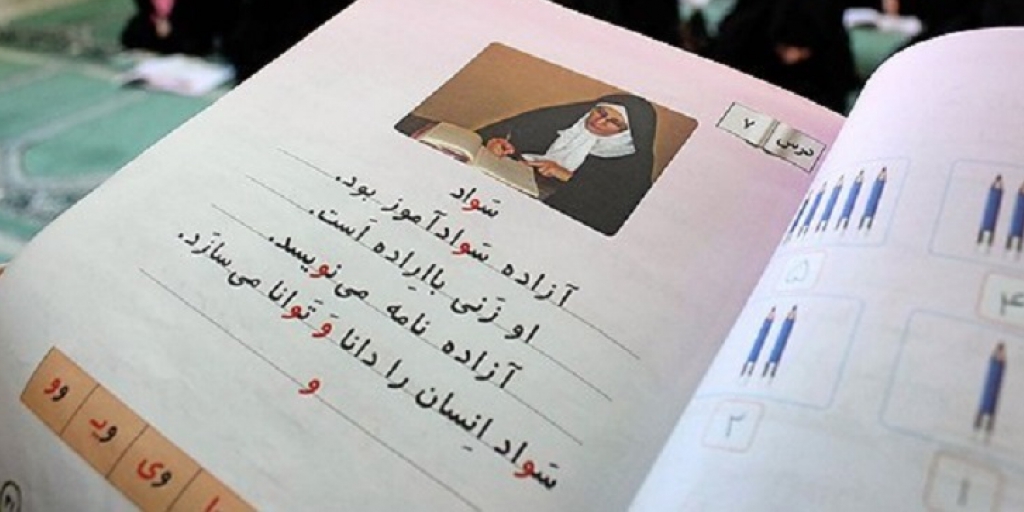 درس ۷
سَواد
آزاده سَوادآموز بود.
او زَنی بااِراده اَست.
آزاده نامه می‌نویسد.
سَواد اِنسان را دانا وَ تَوانا می‌سازَد.
و
وی ویـ وو
۵
۴
۲
۱